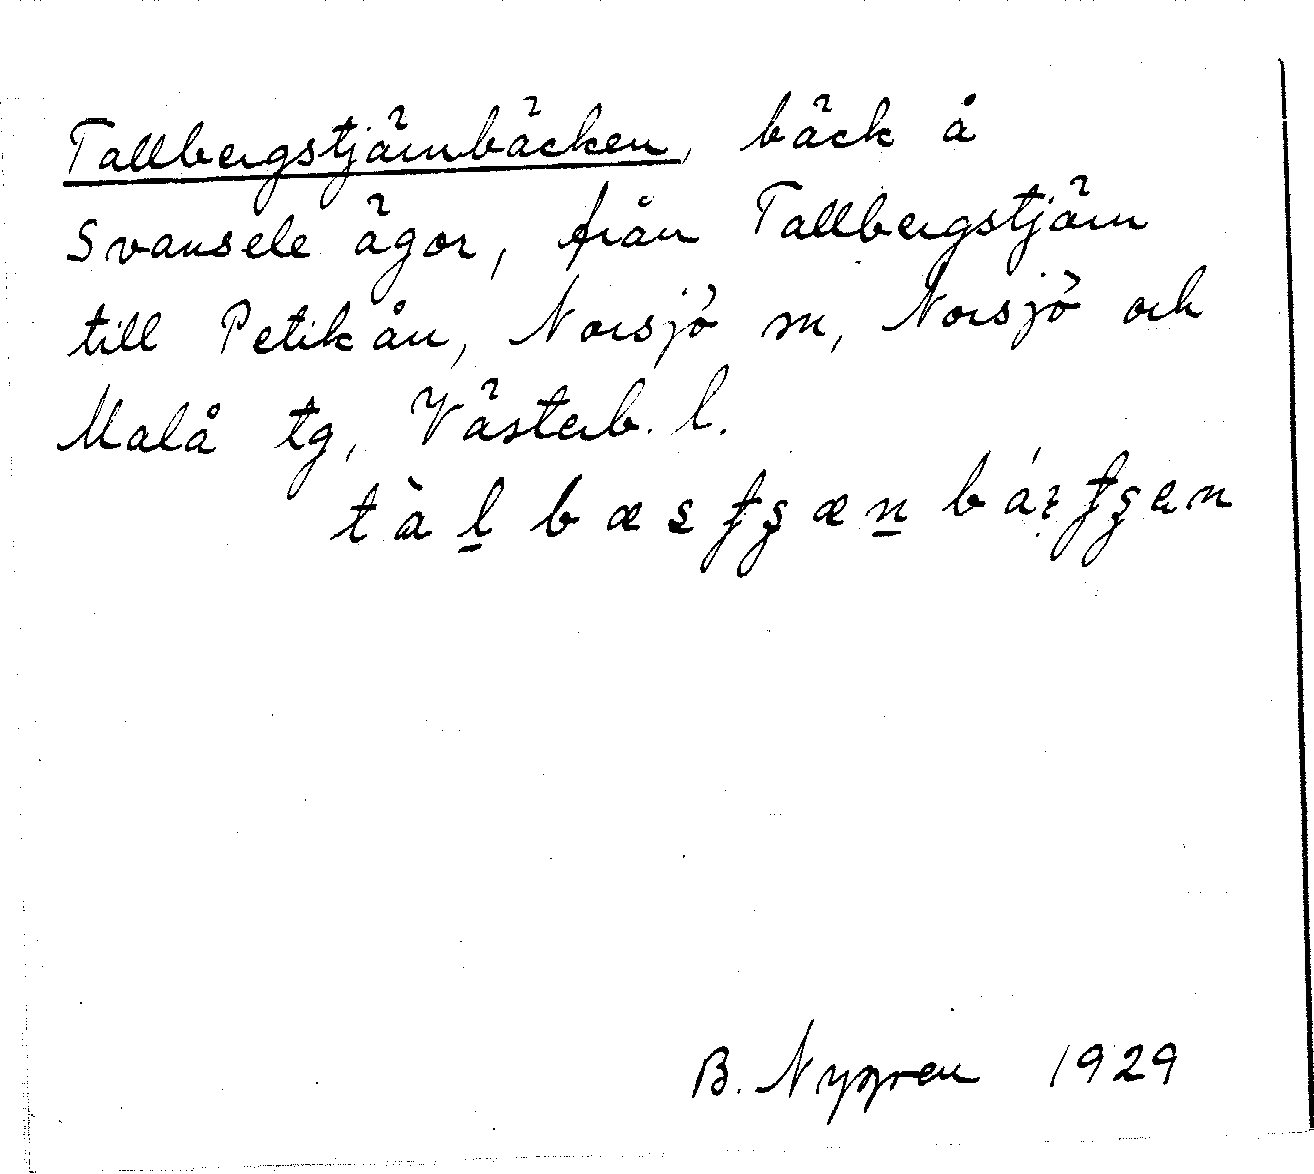 Tallbergstjärnbäcken, bäck å
Svansele ägor, från Tallbergstjärn
till Petikån, Norsjö sn, Norsjö och
Malå tg, Västerb. l.
B. Nygren 1929